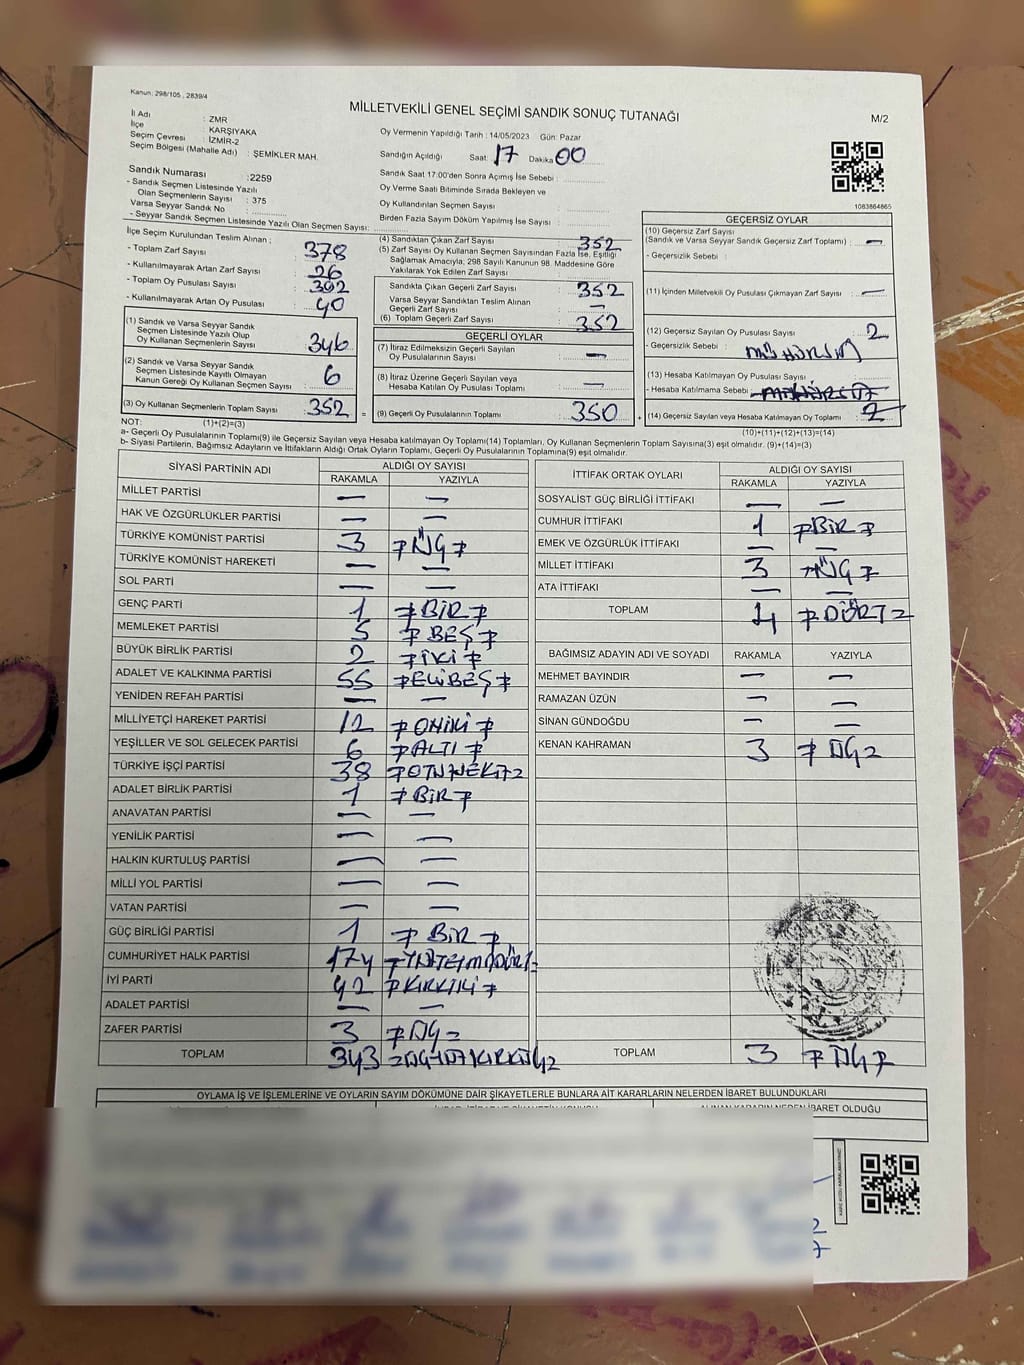 Kanun: 298/105 , 2839/4
MİLLETVEKİLİ GENEL SEÇİMİ SANDIK SONUÇ TUTANAĞI
M/2
İl Adı : ZMR
İlçe : KARŞIYAKA
Seçim Çevresi : İZMİR-2
Seçim Bölgesi (Mahalle Adı) : ŞEMİKLER MAH.
Sandık Numarası :2259
- Sandık Seçmen Listesinde Yazılı
Olan Seçmenlerin Sayısı : 375
Varsa Seyyar Sandık No :
- Seyyar Sandık Seçmen Listesinde Yazılı Olan Seçmen Sayısı:
Oy Vermenin Yapıldığı Tarih : 14/05/2023 Gün: Pazar
Sandığın Açıldığı Saat: 17 Dakika 00
Sandık Saat 17:00'den Sonra Açımış İse Sebebi :
Oy Verme Saati Bitiminde Sırada Bekleyen ve
Oy Kullandırılan Seçmen Sayısı :
Birden Fazla Sayım Döküm Yapılmış İse Sayısı :
1083864865
İlçe Seçim Kurulundan Teslim Alınan ;
- Toplam Zarf Sayısı : 378
- Kullanılmayarak Artan Zarf Sayısı : 26
- Toplam Oy Pusulası Sayısı : 392
- Kullanılmayarak Artan Oy Pusulası : 40
(1) Sandık ve Varsa Seyyar Sandık
Seçmen Listesinde Yazılı Olup
Oy Kullanan Seçmenlerin Sayısı : 346
(2) Sandık ve Varsa Seyyar Sandık
Seçmen Listesinde Kayıtlı Olmayan
Kanun Gereği Oy Kullanan Seçmen Sayısı : 6
(3) Oy Kullanan Seçmenlerin Toplam Sayısı : 352 =
(1)+(2)=(3)
(4) Sandıktan Çıkan Zarf Sayısı : 352
(5) Zarf Sayısı Oy Kullanan Seçmen Sayısından Fazla İse, Eşitliği
Sağlamak Amacıyla; 298 Sayılı Kanunun 98. Maddesine Göre
Yakılarak Yok Edilen Zarf Sayısı :
Sandıkta Çıkan Geçerli Zarf Sayısı : 352
Varsa Seyyar Sandıktan Teslim Alınan
Geçerli Zarf Sayısı : —
(6) Toplam Geçerli Zarf Sayısı : 352
GEÇERLİ OYLAR
(7) İtiraz Edilmeksizin Geçerli Sayılan
Oy Pusulalarının Sayısı : —
(8) İtiraz Üzerine Geçerli Sayılan veya
Hesaba Katılan Oy Pusulası Toplamı : —
(9) Geçerli Oy Pusulalarının Toplamı : 350 +
GEÇERSİZ OYLAR
(10) Geçersiz Zarf Sayısı
(Sandık ve Varsa Seyyar Sandık Geçersiz Zarf Toplamı) : —
- Geçersizlik Sebebi :
(11) İçinden Milletvekili Oy Pusulası Çıkmayan Zarf Sayısı : —
(12) Geçersiz Sayılan Oy Pusulası Sayısı : 2
- Geçersizlik Sebebi :
(13) Hesaba Katılmayan Oy Pusulası Sayısı :
- Hesaba Katılmama Sebebi :
(14) Geçersiz Sayılan veya Hesaba Katılmayan Oy Toplamı : 2
(10)+(11)+(12)+(13)=(14)
NOT:
a- Geçerli Oy Pusulalarının Toplamı(9) ile Geçersiz Sayılan veya Hesaba katılmayan Oy Toplamı(14) Toplamları, Oy Kullanan Seçmenlerin Toplam Sayısına(3) eşit olmalıdır. (9)+(14)=(3)
b- Siyasi Partilerin, Bağımsız Adayların ve İttifakların Aldığı Ortak Oyların Toplamı, Geçerli Oy Pusulalarının Toplamına(9) eşit olmalıdır.
SİYASİ PARTİNİN ADI ALDIĞI OY SAYISI
RAKAMLA YAZIYLA
MİLLET PARTİSİ — —
HAK VE ÖZGÜRLÜKLER PARTİSİ — —
TÜRKİYE KOMÜNİST PARTİSİ 3 ÜÇ
TÜRKİYE KOMÜNİST HAREKETİ — —
SOL PARTİ — —
GENÇ PARTİ 1 BİR
MEMLEKET PARTİSİ 5 BEŞ
BÜYÜK BİRLİK PARTİSİ 2 İKİ
ADALET VE KALKINMA PARTİSİ 55 ELLİBEŞ
YENİDEN REFAH PARTİSİ — —
MİLLİYETÇİ HAREKET PARTİSİ 12 ONİKİ
YEŞİLLER VE SOL GELECEK PARTİSİ 6 ALTI
TÜRKİYE İŞÇİ PARTİSİ 38 OTUZSEKİZ
ADALET BİRLİK PARTİSİ 1 BİR
ANAVATAN PARTİSİ — —
YENİLİK PARTİSİ — —
HALKIN KURTULUŞ PARTİSİ — —
MİLLİ YOL PARTİSİ — —
VATAN PARTİSİ — —
GÜÇ BİRLİĞİ PARTİSİ 1 BİR
CUMHURİYET HALK PARTİSİ 174 YÜZYETMİŞDÖRT
İYİ PARTİ 42 KIRKİKİ
ADALET PARTİSİ — —
ZAFER PARTİSİ 3 ÜÇ
TOPLAM 343 ÜÇYÜZKIRKÜÇ
İTTİFAK ORTAK OYLARI ALDIĞI OY SAYISI
RAKAMLA YAZIYLA
SOSYALİST GÜÇ BİRLİĞİ İTTİFAKI — —
CUMHUR İTTİFAKI 1 BİR
EMEK VE ÖZGÜRLÜK İTTİFAKI — —
MİLLET İTTİFAKI 3 ÜÇ
ATA İTTİFAKI — —
TOPLAM 4 DÖRT
BAĞIMSIZ ADAYIN ADI VE SOYADI RAKAMLA YAZIYLA
MEHMET BAYINDIR — —
RAMAZAN ÜZÜN — —
SİNAN GÜNDOĞDU — —
KENAN KAHRAMAN 3 ÜÇ
TOPLAM 3 ÜÇ
OYLAMA İŞ VE İŞLEMLERİNE VE OYLARIN SAYIM DÖKÜMÜNE DAİR ŞİKAYETLERLE BUNLARA AİT KARARLARIN NELERDEN İBARET BULUNDUKLARI